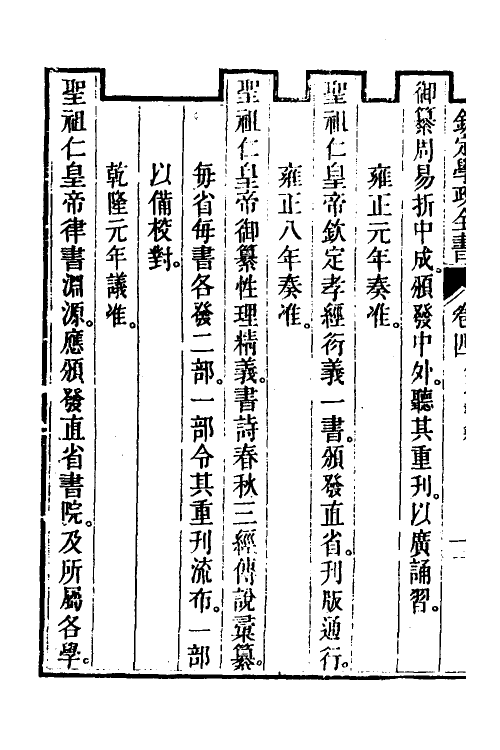 欽定學政全書 卷四
御纂周易折中成。頒發中外。聽其重刊。以廣誦習。
雍正元年奏准。
聖祖仁皇帝欽定孝經衍義一書。頒發直省。刊版通行。
雍正八年奏准。
聖祖仁皇帝御纂性理精義。書詩春秋三經傳說彙纂。
每省每書各發二部。一部令其重刊流布。一部
以備校對。
乾隆元年議准。
聖祖仁皇帝律書淵源。應頒發直省書院。及所屬各學。